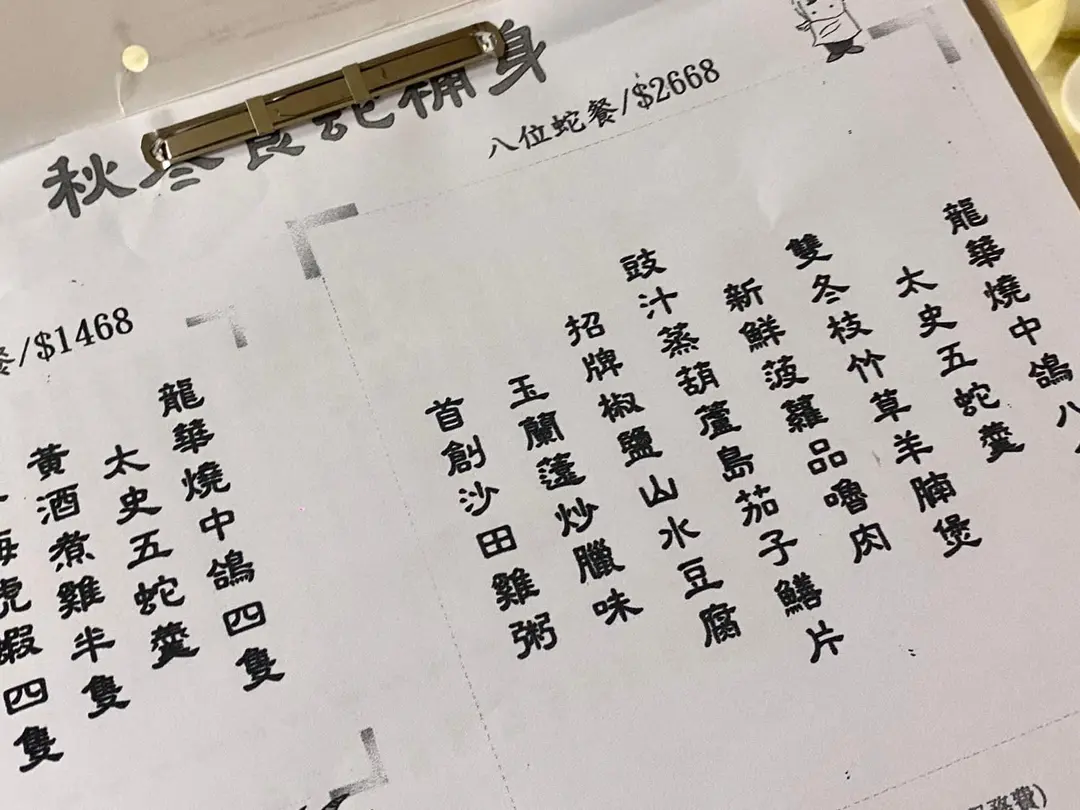 秋冬食蛇補身
八位蛇餐/$2668
龍華燒中鴿八
太史五蛇羹
雙冬枝竹草羊腩煲
新鮮菠蘿品嚕肉
豉汁蒸葫蘆島茄子鱔片
招牌椒鹽山水豆腐
玉蘭薳炒臘味
首創沙田雞粥
餐/$1468
龍華燒中鴿四隻
太史五蛇羹
黃酒煮雞半隻
海虎蝦四隻
務費)